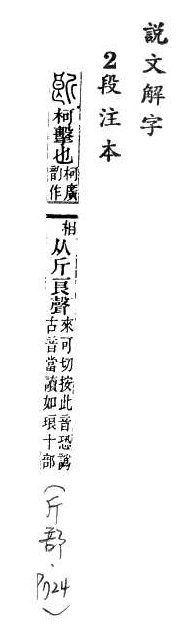 說文解字
2段注本
柯擊也柯廣韵作相从斤良聲來可切按此音恐譌古音當讀如琅十部
(斤部·P724)